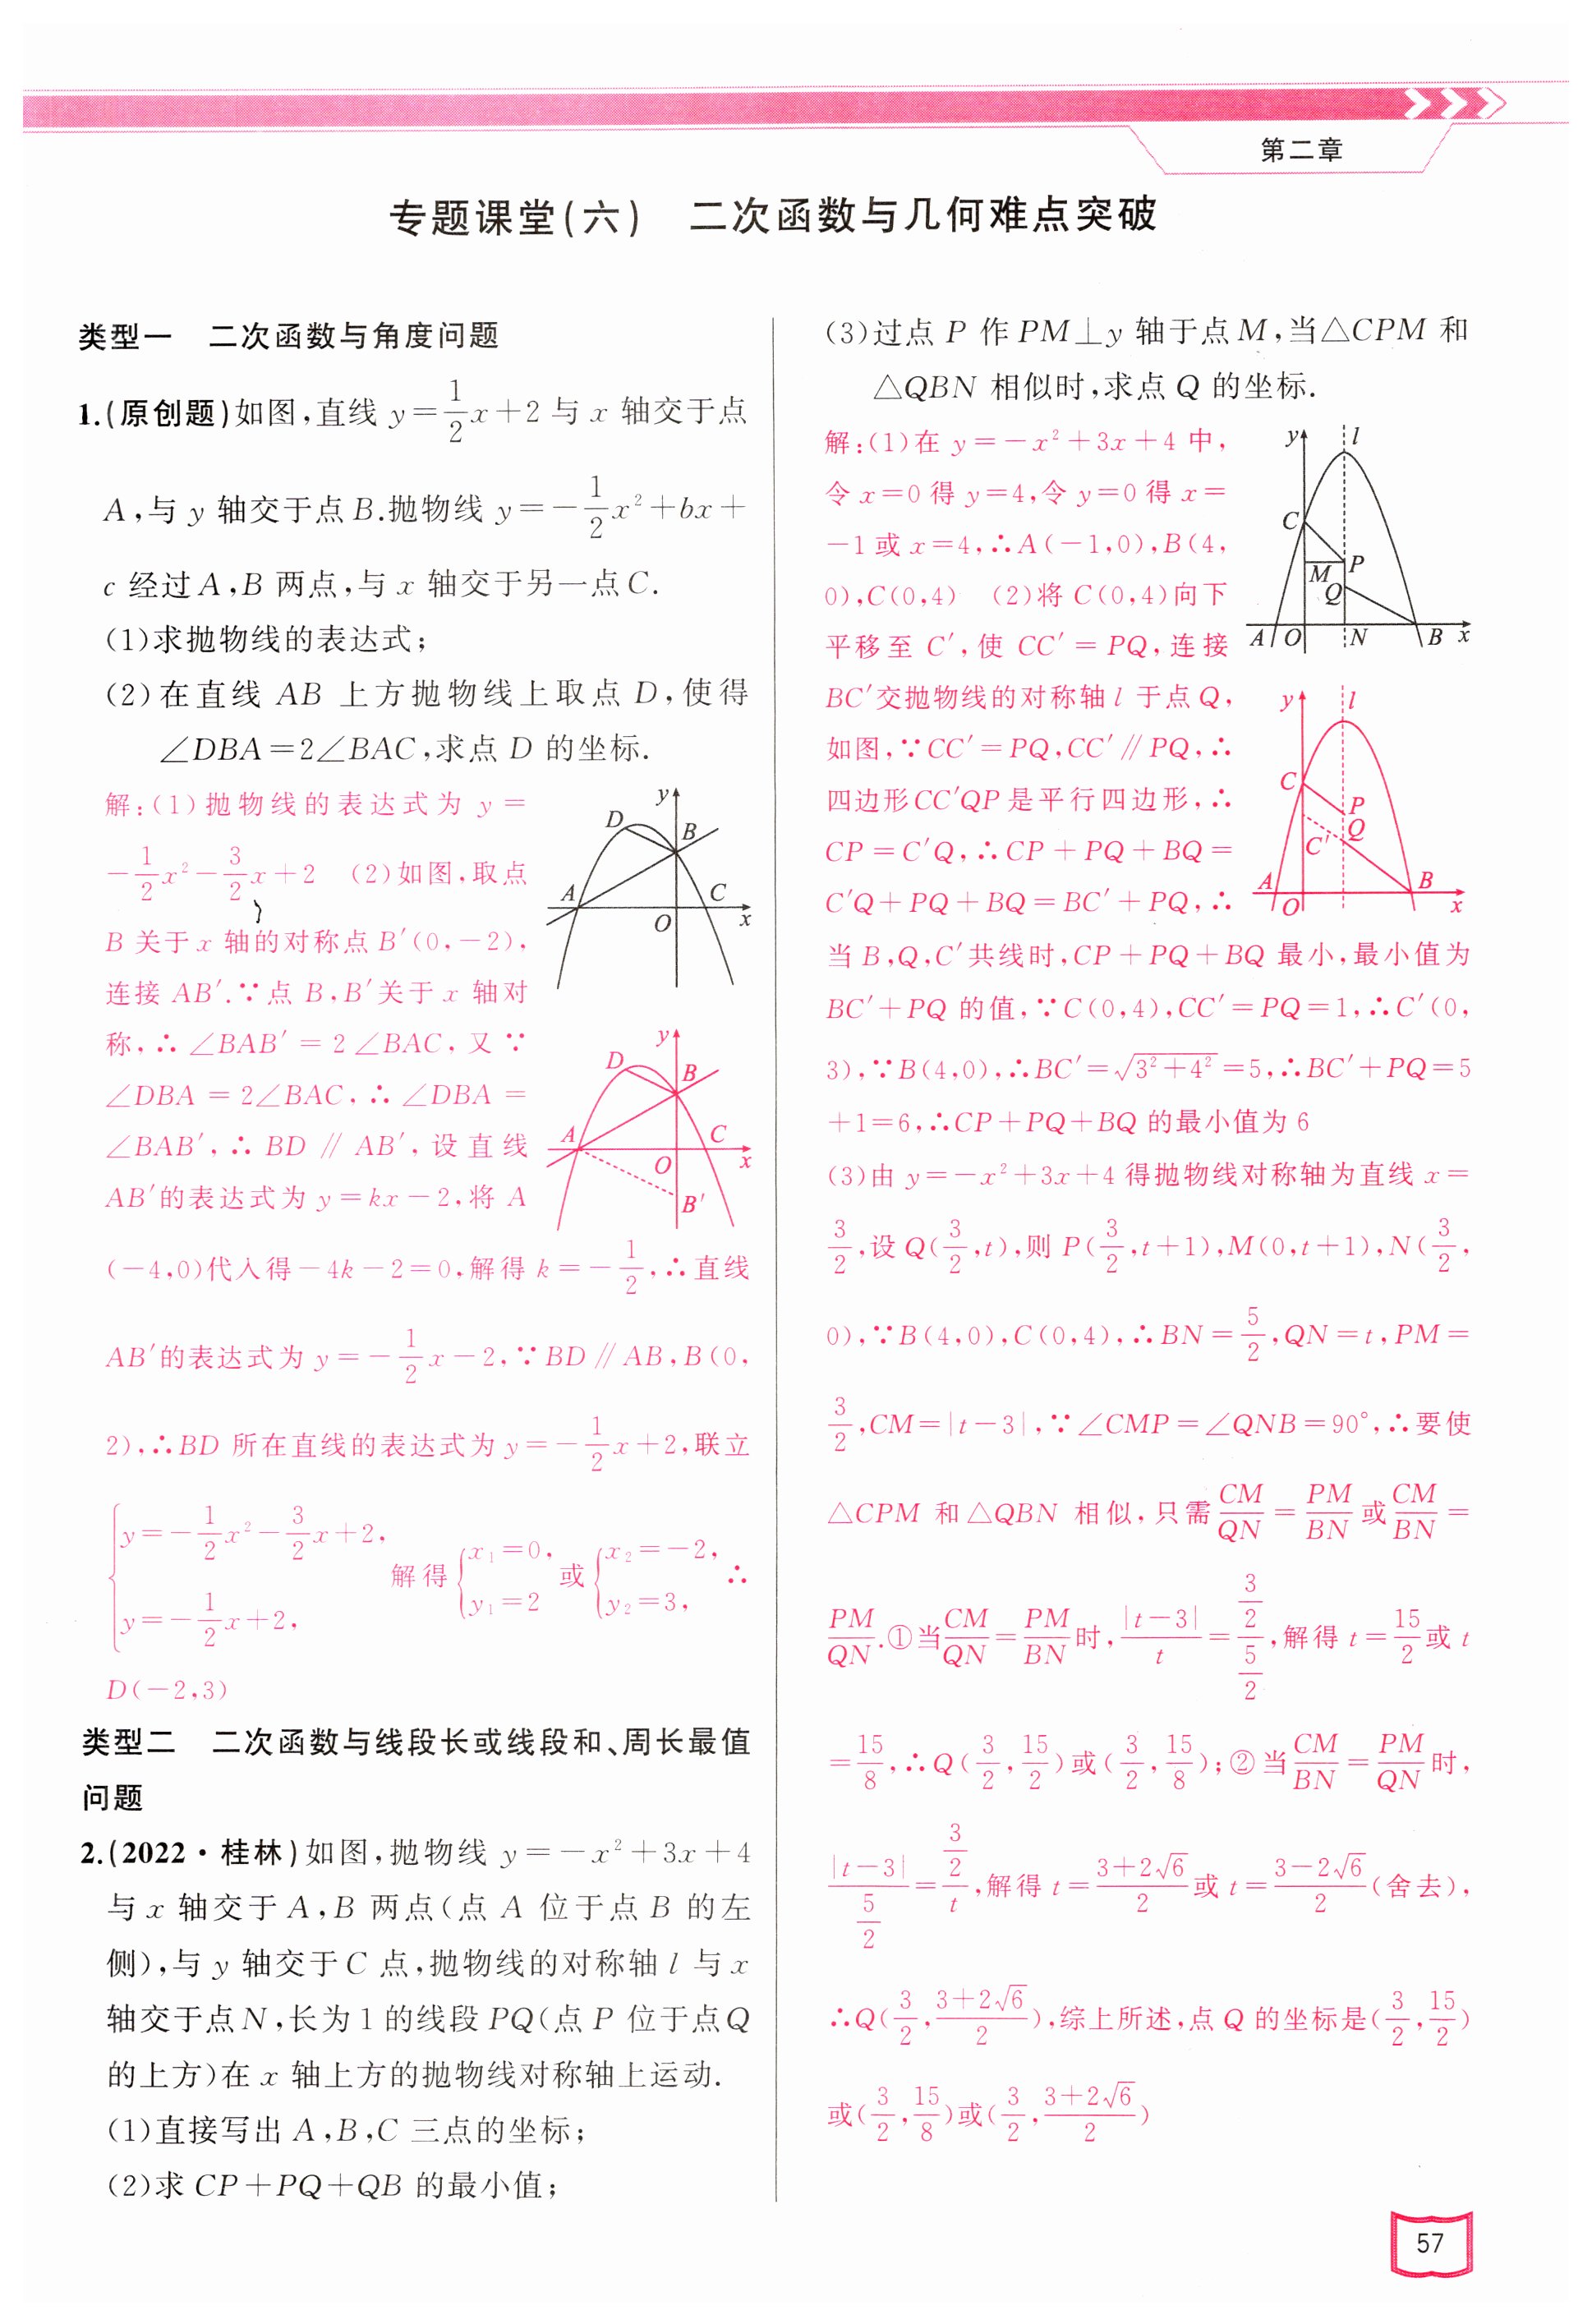 第二章
专题课堂(六) 二次函数与几何难点突破
类型一 二次函数与角度问题
1.(原创题)如图,直线 y=\frac{1}{2}x+2 与 x 轴交于点
A,与 y 轴交于点 B.抛物线 y=-\frac{1}{2}x²+bx+
c 经过 A,B 两点,与 x 轴交于另一点 C.
(1)求抛物线的表达式;
(2)在直线 AB 上方抛物线上取点 D,使得
∠DBA=2∠BAC,求点 D 的坐标.
解:(1)抛物线的表达式为 y=
-\frac{1}{2}x²-\frac{3}{2}x+2 (2)如图,取点
B 关于 x 轴的对称点 B′(0,-2),
连接 AB′.∵点 B,B′关于 x 轴对
称,∴∠BAB′=2∠BAC,又∵
∠DBA=2∠BAC,∴∠DBA=
∠BAB′,∴BD∥AB′,设直线
AB′的表达式为 y=kx-2,将 A
(-4,0)代入得-4k-2=0,解得 k=-\frac{1}{2},∴直线
AB′的表达式为 y=-\frac{1}{2}x-2,∵BD∥AB,B(0,
2),∴BD 所在直线的表达式为 y=-\frac{1}{2}x+2,联立
{y=-\frac{1}{2}x²-\frac{3}{2}x+2, y=-\frac{1}{2}x+2, 解得{x₁=0, y₁=2 或{x₂=-2, y₂=3, ∴
D(-2,3)
y
D
B
A
C
O
x
y
D
B
A
C
O
x
B′
类型二 二次函数与线段长或线段和、周长最值
问题
2.(2022·桂林)如图,抛物线 y=-x²+3x+4
与 x 轴交于 A,B 两点(点 A 位于点 B 的左
侧),与 y 轴交于 C 点,抛物线的对称轴 l 与 x
轴交于点 N,长为 1 的线段 PQ(点 P 位于点 Q
的上方)在 x 轴上方的抛物线对称轴上运动.
(1)直接写出 A,B,C 三点的坐标;
(2)求 CP+PQ+QB 的最小值;
(3)过点 P 作 PM⊥y 轴于点 M,当△CPM 和
△QBN 相似时,求点 Q 的坐标.
解:(1)在 y=-x²+3x+4 中,
令 x=0 得 y=4,令 y=0 得 x=
-1 或 x=4,∴A(-1,0),B(4,
0),C(0,4) (2)将 C(0,4)向下
平移至 C′,使 CC′=PQ,连接
BC′交抛物线的对称轴 l 于点 Q,
如图,∵CC′=PQ,CC′∥PQ,∴
四边形 CC′QP 是平行四边形,∴
CP=C′Q,∴CP+PQ+BQ=
C′Q+PQ+BQ=BC′+PQ,∴
当 B,Q,C′共线时,CP+PQ+BQ 最小,最小值为
BC′+PQ 的值,∵C(0,4),CC′=PQ=1,∴C′(0,
3),∵B(4,0),∴BC′=\sqrt{3²+4²}=5,∴BC′+PQ=5
+1=6,∴CP+PQ+BQ 的最小值为 6
(3)由 y=-x²+3x+4 得抛物线对称轴为直线 x=
\frac{3}{2},设 Q(\frac{3}{2},t),则 P(\frac{3}{2},t+1),M(0,t+1),N(\frac{3}{2},
0),∵B(4,0),C(0,4),∴BN=\frac{5}{2},QN=t,PM=
\frac{3}{2},CM=|t-3|,∵∠CMP=∠QNB=90°,∴要使
△CPM 和△QBN 相似,只需\frac{CM}{QN}=\frac{PM}{BN}或\frac{CM}{BN}=
\frac{PM}{QN}.①当\frac{CM}{QN}=\frac{PM}{BN}时,\frac{|t-3|}{t}=\frac{\frac{3}{2}}{\frac{5}{2}},解得 t=\frac{15}{2}或 t
=\frac{15}{8},∴Q(\frac{3}{2},\frac{15}{2})或(\frac{3}{2},\frac{15}{8});②当\frac{CM}{BN}=\frac{PM}{QN}时,
\frac{|t-3|}{\frac{5}{2}}=\frac{\frac{3}{2}}{t},解得 t=\frac{3+2\sqrt{6}}{2}或 t=\frac{3-2\sqrt{6}}{2}(舍去),
∴Q(\frac{3}{2},\frac{3+2\sqrt{6}}{2}),综上所述,点 Q 的坐标是(\frac{3}{2},\frac{15}{2})
或(\frac{3}{2},\frac{15}{8})或(\frac{3}{2},\frac{3+2\sqrt{6}}{2})
y
l
C
M
P
Q
A
O
N
B
x
y
l
C
P
Q
C′
A
O
B
x
57